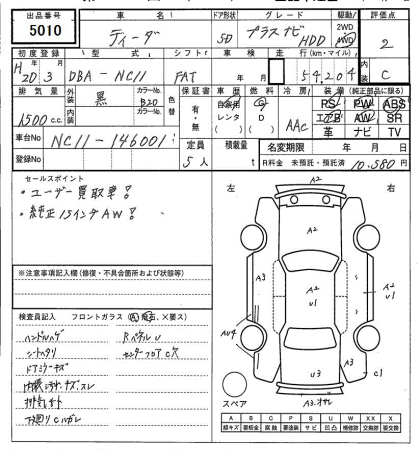 出品番号 車名 ドア形状 グレード 駆動 評価点
5010 ティーダ 5D プラスナビ HDD 2WD 4WD 2
初度登録 型式 シフト 車検 走行(km・マイル) 内装
H20 3 DBA-NC11 FAT 年 月 54,204 C
排気量 外装 カラーNo. 色替 保証書 車歴 燃料 冷房 装備(純正品に限る)
1500 c.c. 黒 B20 有・無 自家用 レンタ G D AAC PS PW ABS
エアB AW SR
革 ナビ TV
車台No NC11-146001 定員 5人 積載量 t 名変期限 年 月 日
R料金 未預託・預託済 10,580円
セールスポイント
・ユーザー買取車!
・純正15インチAW!
左 右
※注意事項記入欄(修復・不具合箇所および状態等)
検査員記入 フロントガラス(A飛石、×要ス)
ハンドルハゲ RパネルU
シートヘタリ センターフロアC穴
ドアミラーキズ
内張シミ・キズ・スレ
下廻りCハガレ
A2
A2
A3 A2
U1 U1
AU4
U3 A3 C1
A3.オサレ
スペア
A B C P S U W X XX
線キズ 要板金 腐蝕 要塗装 サビ 凹凸 補修跡 要交換 交換済